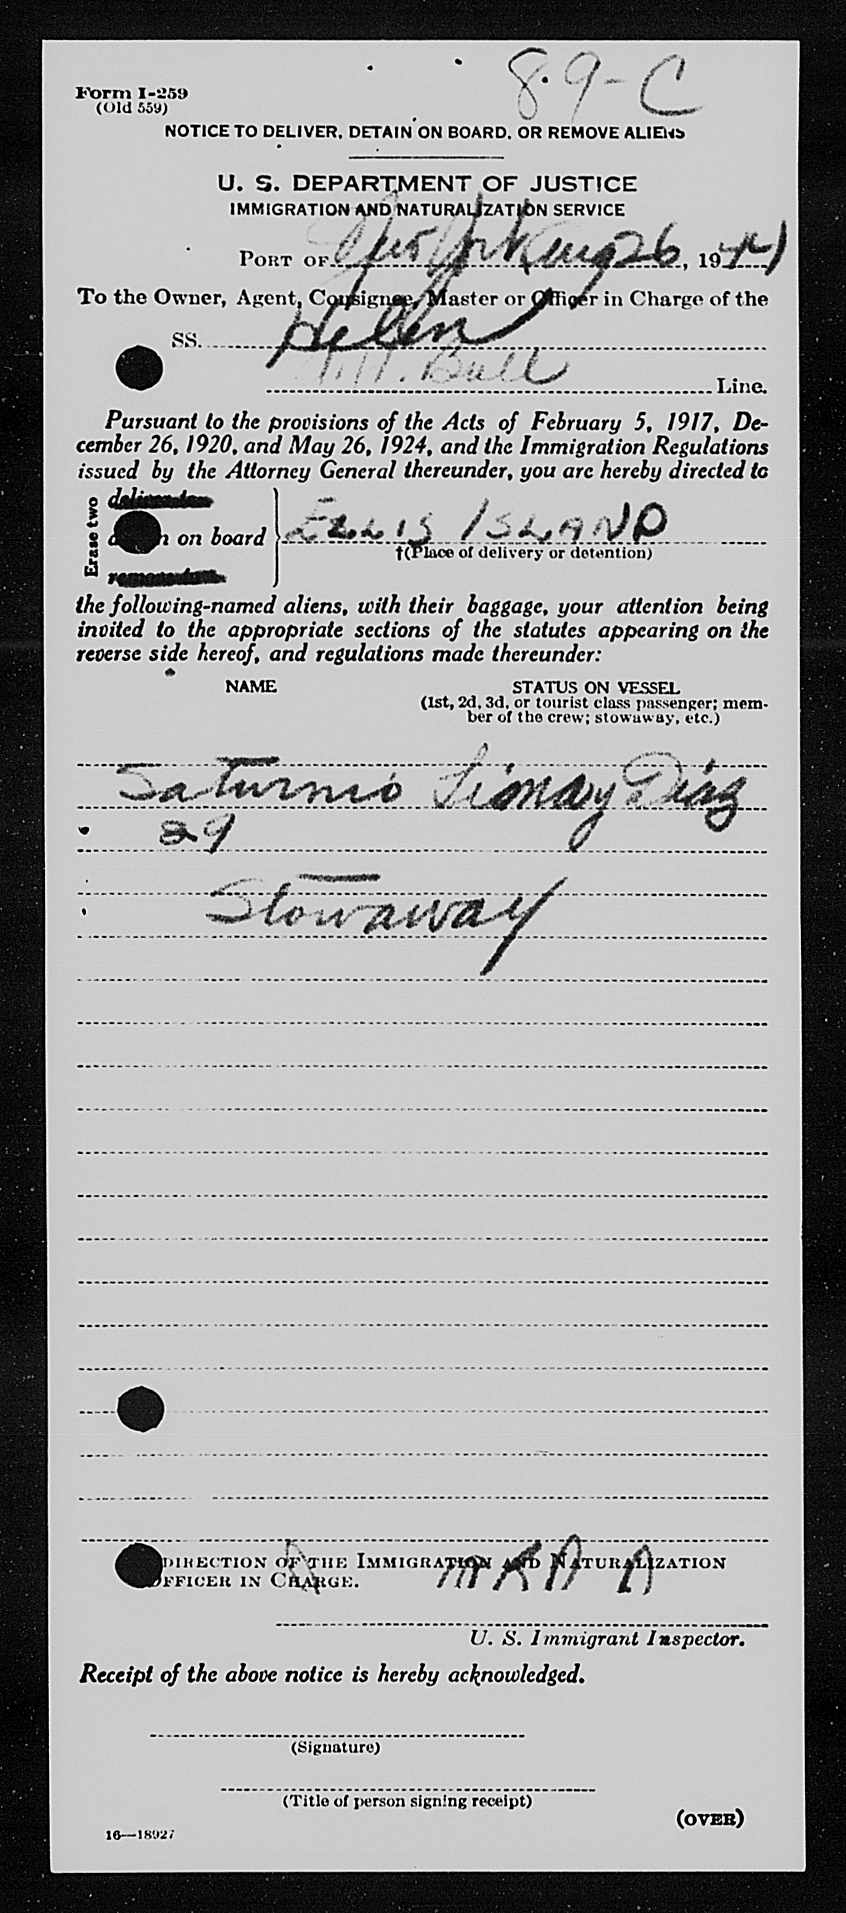 8-9-C
Form I-259
(Old 559)
NOTICE TO DELIVER, DETAIN ON BOARD, OR REMOVE ALIENS
U. S. DEPARTMENT OF JUSTICE
IMMIGRATION AND NATURALIZATION SERVICE
PORT OF New York Aug 26, 1941
To the Owner, Agent, Consignee, Master or Officer in Charge of the
SS. Helen
Bull Line.
Pursuant to the provisions of the Acts of February 5, 1917, De-
cember 26, 1920, and May 26, 1924, and the Immigration Regulations
issued by the Attorney General thereunder, you are hereby directed to
Erase two
on board ELLIS ISLAND
†(Place of delivery or detention)
the following-named aliens, with their baggage, your attention being
invited to the appropriate sections of the statutes appearing on the
reverse side hereof, and regulations made thereunder:
NAME STATUS ON VESSEL
(1st, 2d, 3d, or tourist class passenger; mem-
ber of the crew; stowaway, etc.)
Saturnio Diaz
29
Stowaway
DIRECTION OF THE IMMIGRATION AND NATURALIZATION
OFFICER IN CHARGE.
U. S. Immigrant Inspector.
Receipt of the above notice is hereby acknowledged.
(Signature)
(Title of person signing receipt)
(OVER)
16—18927